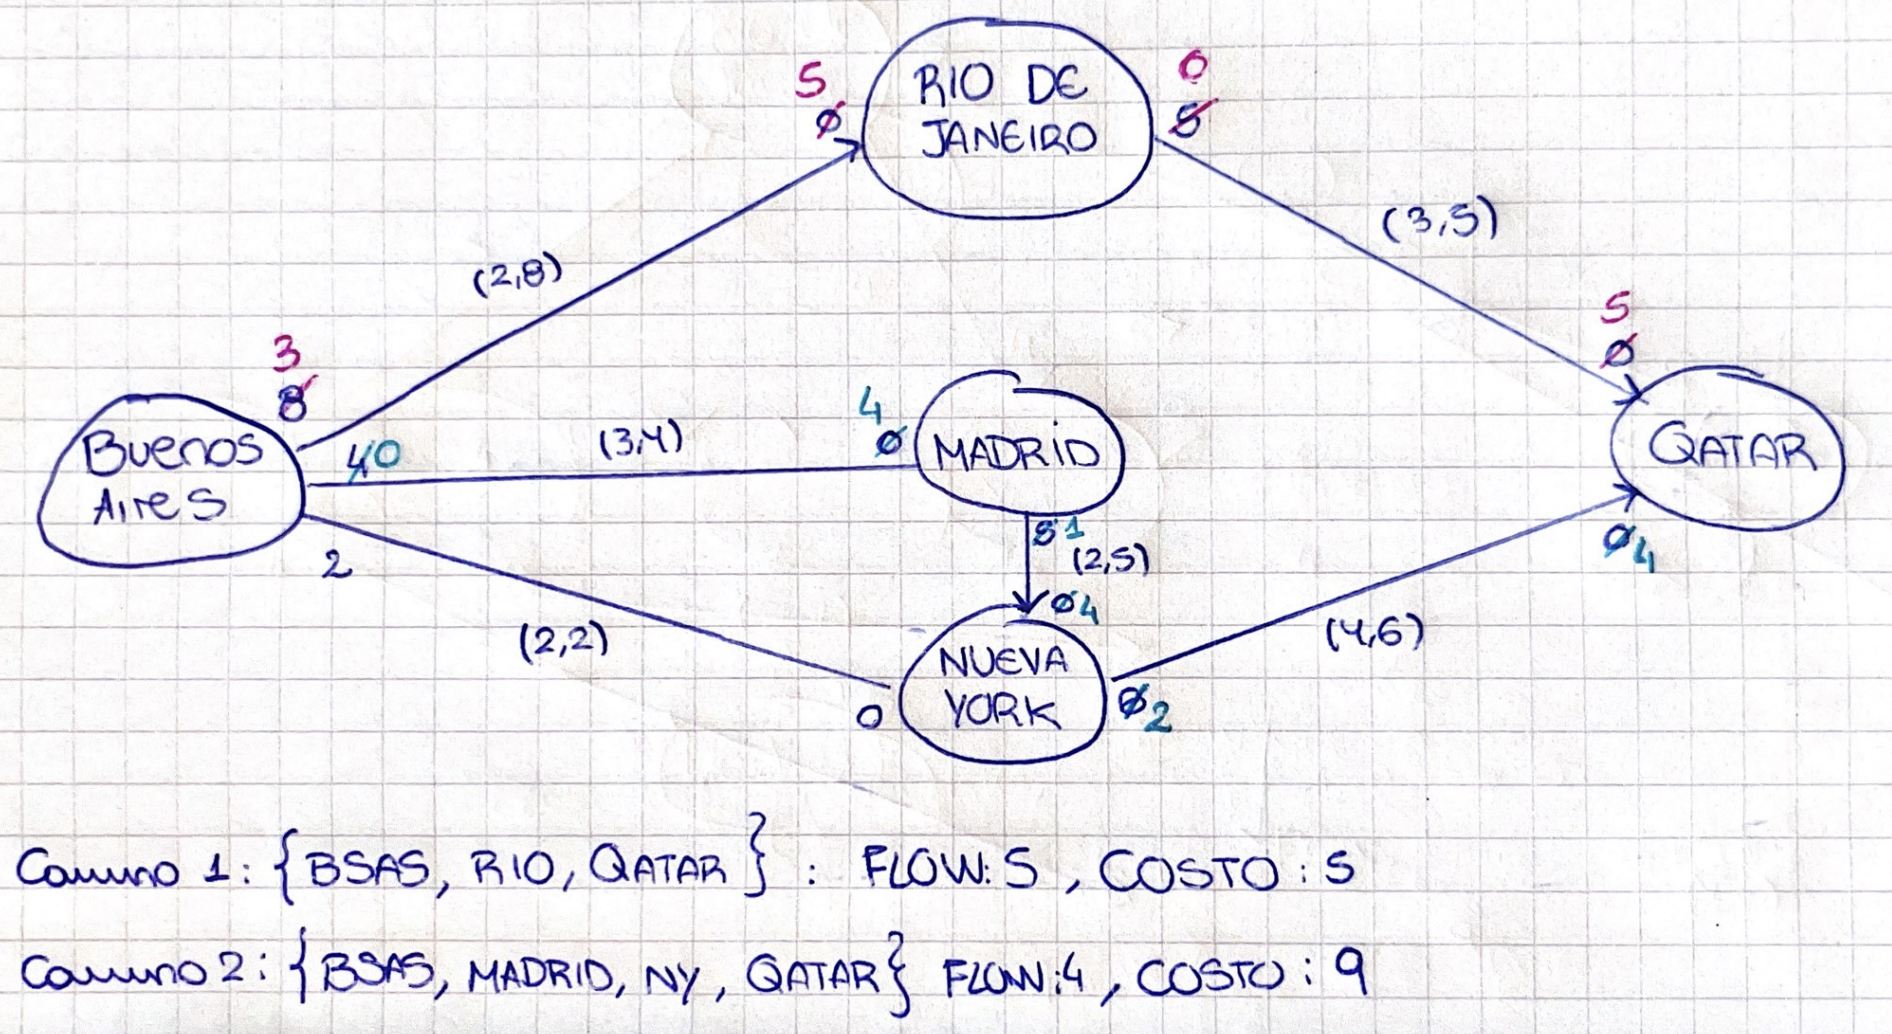 5
0
RIO DE
JANEIRO
0
5
(2,8)
(3,5)
3
8
5
0
Buenos
Aires
40
(3,4)
4
0
MADRID
QATAR
2
51
(2,5)
04
04
(2,2)
(4,6)
0
NUEVA
YORK
62
Camino 1: {BSAS, RIO, QATAR} : FLOW: 5, COSTO: 5
Camino 2: {BSAS, MADRID, NY, QATAR} FLOW: 4, COSTO: 9